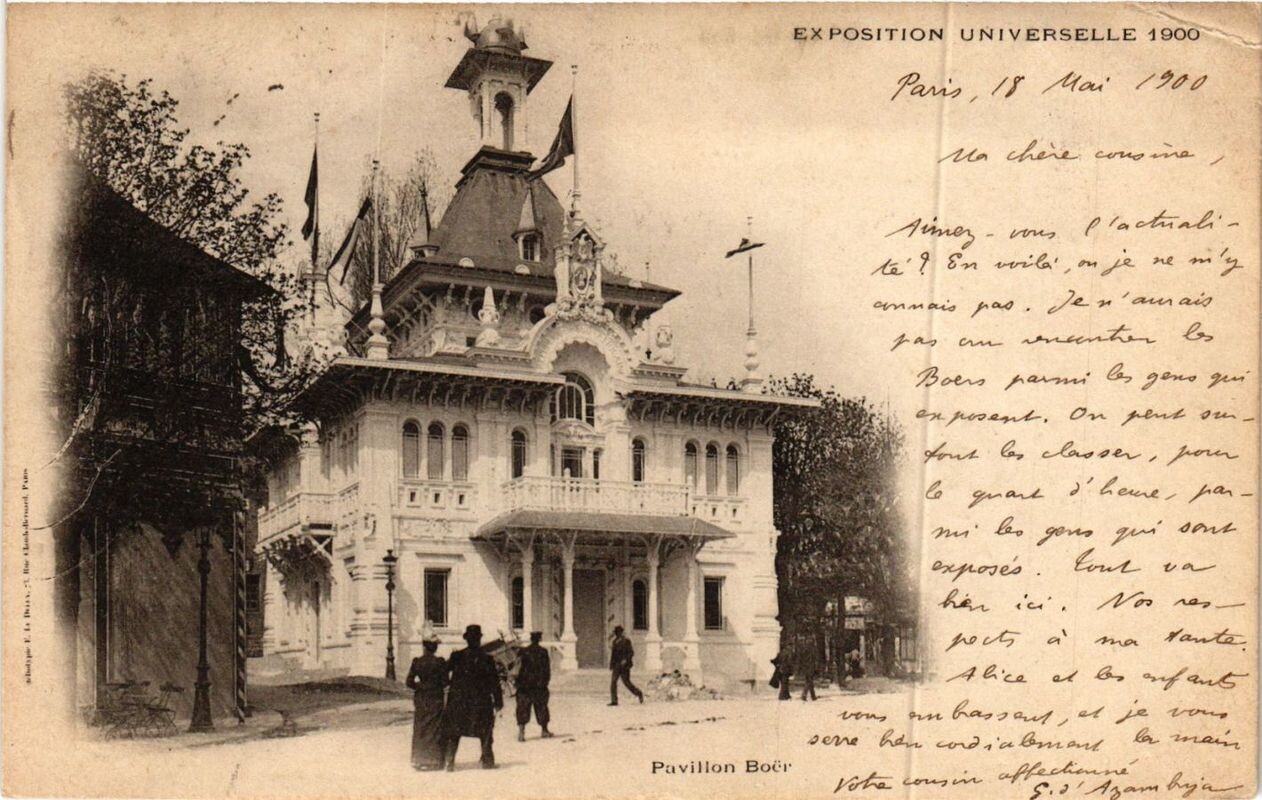 EXPOSITION UNIVERSELLE 1900
Paris, 18 Mai 1900
Ma chère cousine,
Aimez-vous l'actuali-
té? En voilà, ou je ne m'y
connais pas. Je n'aurais
pas cru rencontrer les
Boers parmi les gens qui
exposent. On peut sur-
tout les classer, pour
le quart d'heure, par-
mi les gens qui sont
exposés. Tout va
bien ici. Nos res-
pects à ma tante.
Alice et les enfants
vous embrassent, et je vous
serre bien cordialement la main
Votre cousin affectionné
G. d'Azambuja
Pavillon Boër
Phototypie E. Le Deley, 71, Rue Claude-Bernard, Paris